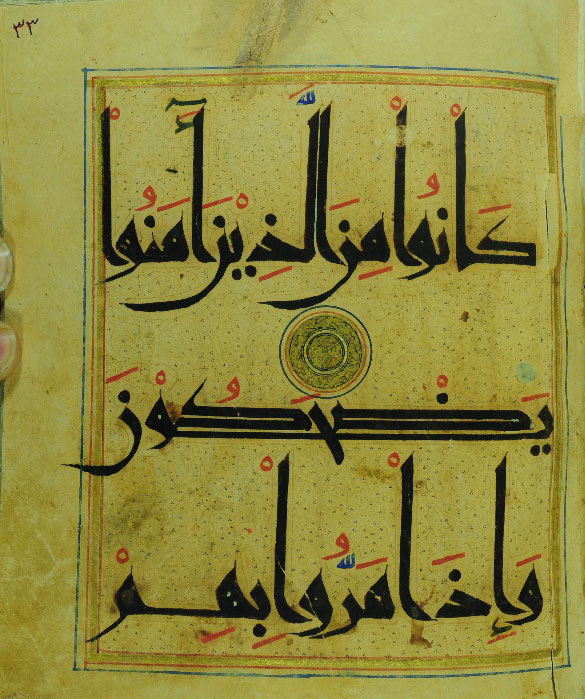 ٣٣
كَانُواْ مِنَ الَّذِينَ آمَنُواْ
يَضْحَكُونَ
وَإِذَا مَرُّواْ بِهِمْ